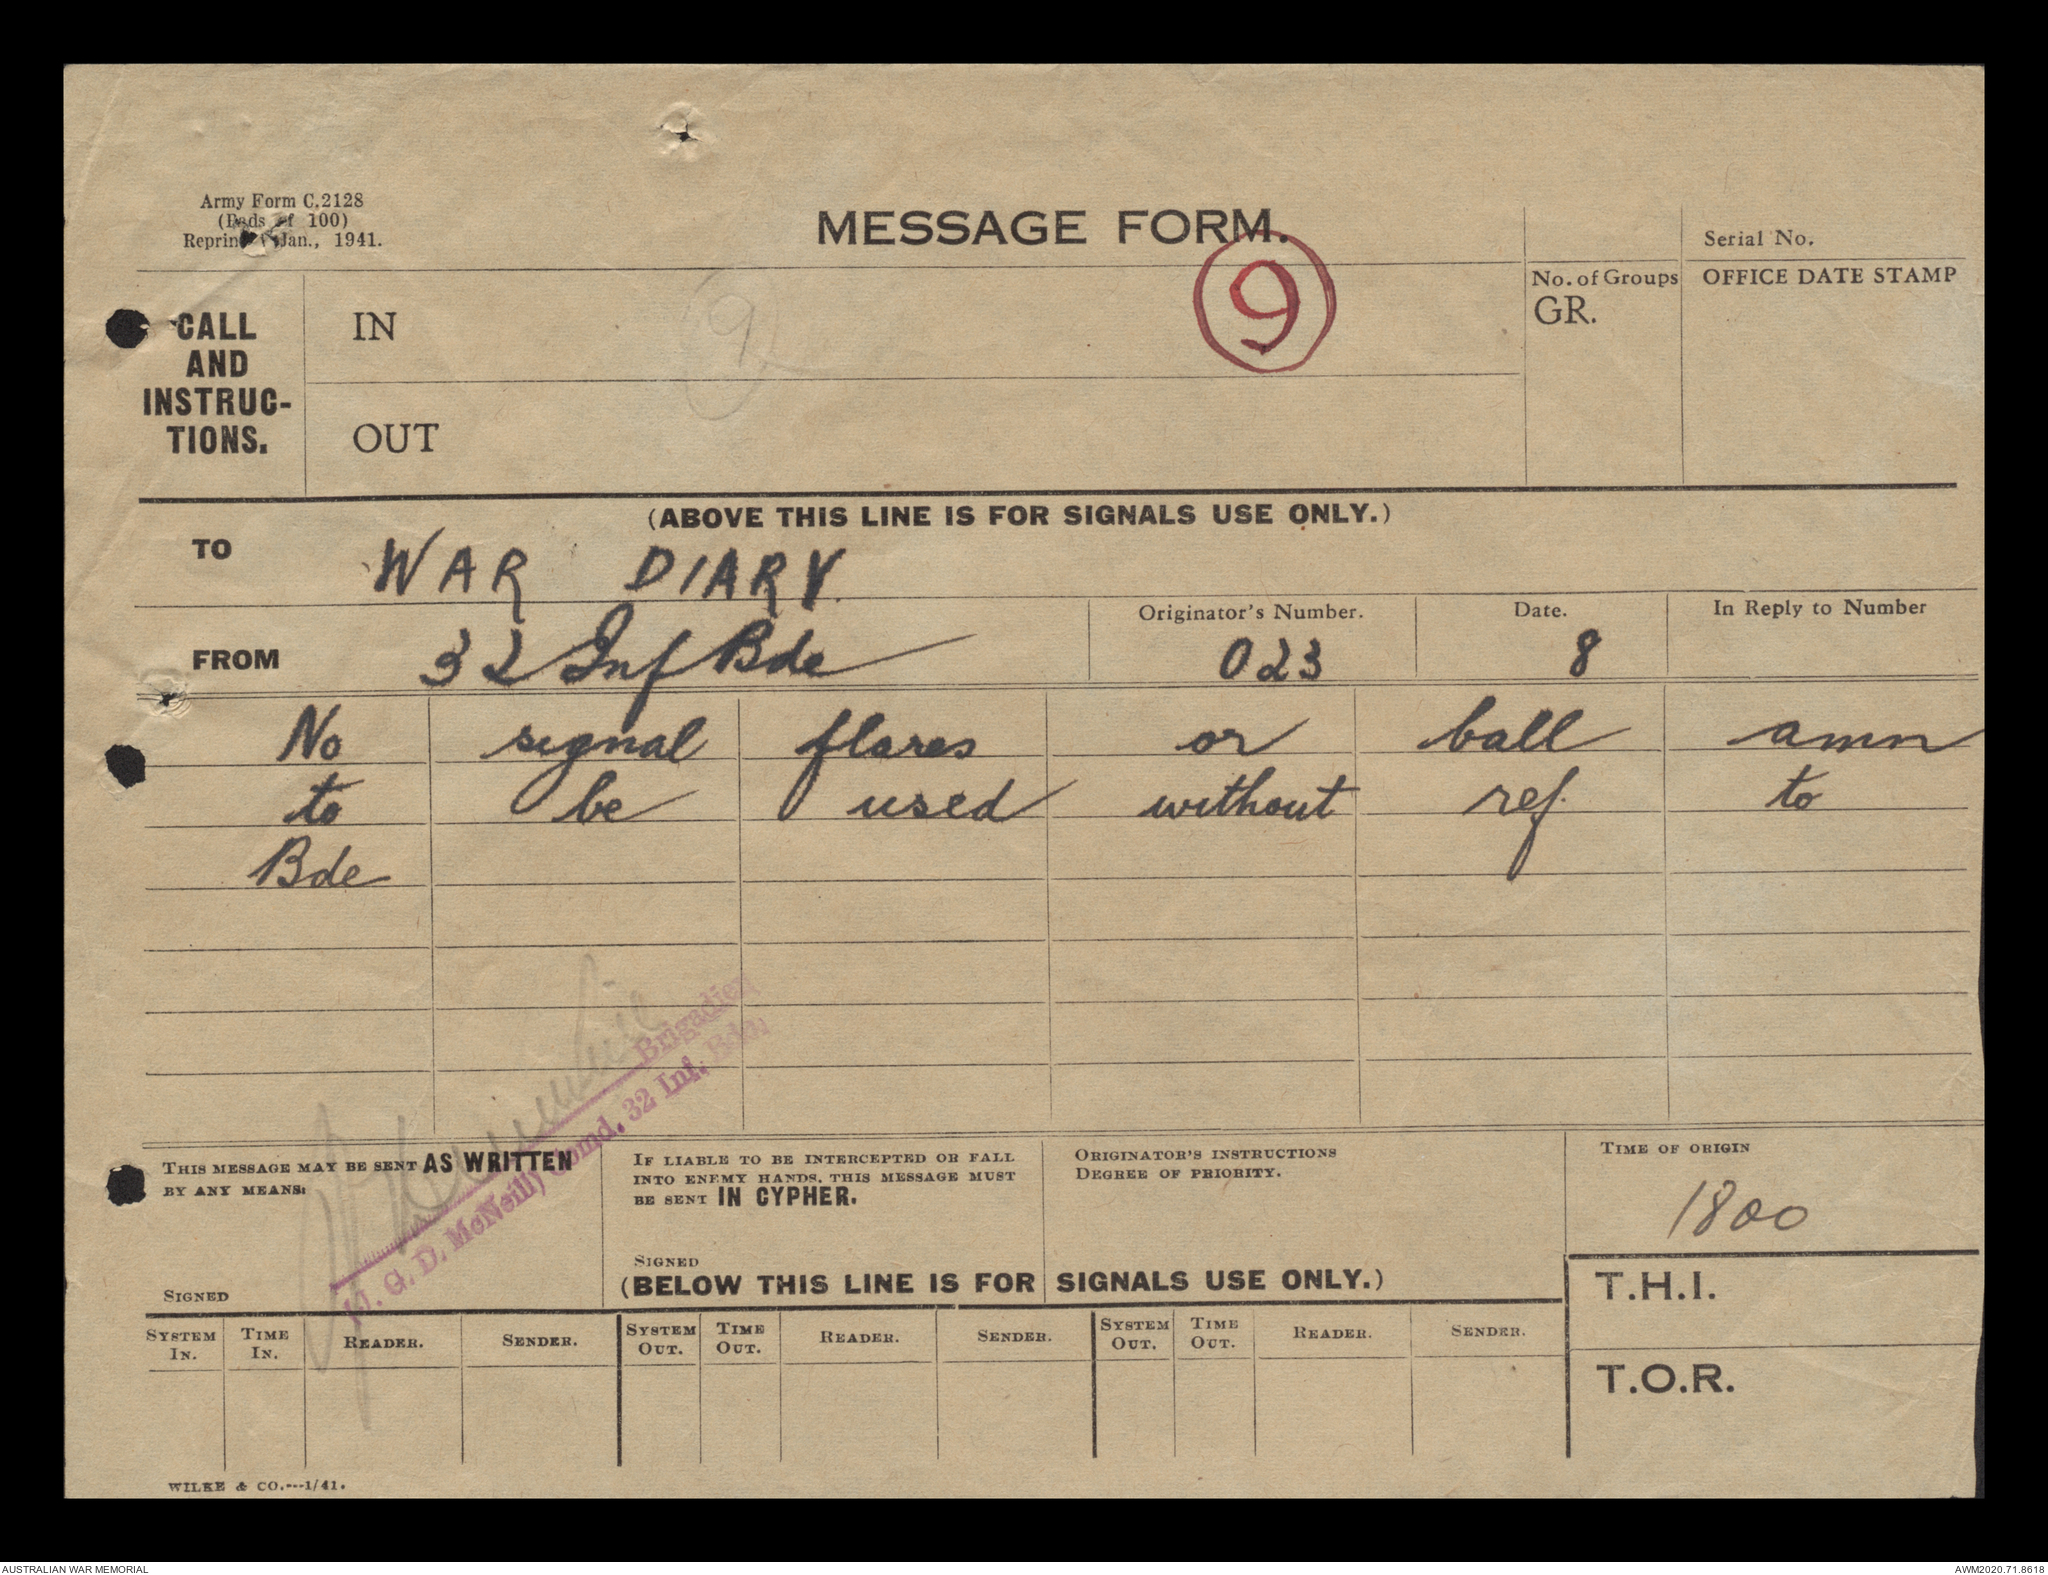 Army Form C.2128
(Pads of 100)
Jan., 1941.
MESSAGE FORM.
Serial No.
CALL AND INSTRUC-TIONS.
IN
9
9
No. of Groups
GR.
OFFICE DATE STAMP
OUT
(ABOVE THIS LINE IS FOR SIGNALS USE ONLY.)
TO WAR DIARY.
FROM 32 Inf Bde
Originator's Number.
023
Date.
8
In Reply to Number
No signal flares or ball amn
to be used without ref. to
Bde
Brigadier
G. D. McNeilly Comd. 32 Inf. Bde.
THIS MESSAGE MAY BE SENT AS WRITTEN
BY ANY MEANS:
SIGNED
IF LIABLE TO BE INTERCEPTED OR FALL
INTO ENEMY HANDS, THIS MESSAGE MUST
BE SENT IN CYPHER.
SIGNED
ORIGINATOR'S INSTRUCTIONS
DEGREE OF PRIORITY.
TIME OF ORIGIN
1800
(BELOW THIS LINE IS FOR SIGNALS USE ONLY.)
T.H.I.
SYSTEM IN. TIME IN. READER. SENDER. SYSTEM OUT. TIME OUT. READER. SENDER. SYSTEM OUT. TIME OUT. READER. SENDER.
T.O.R.
WILKE & CO.---1/41.
AUSTRALIAN WAR MEMORIAL
AWM2020.71.8618